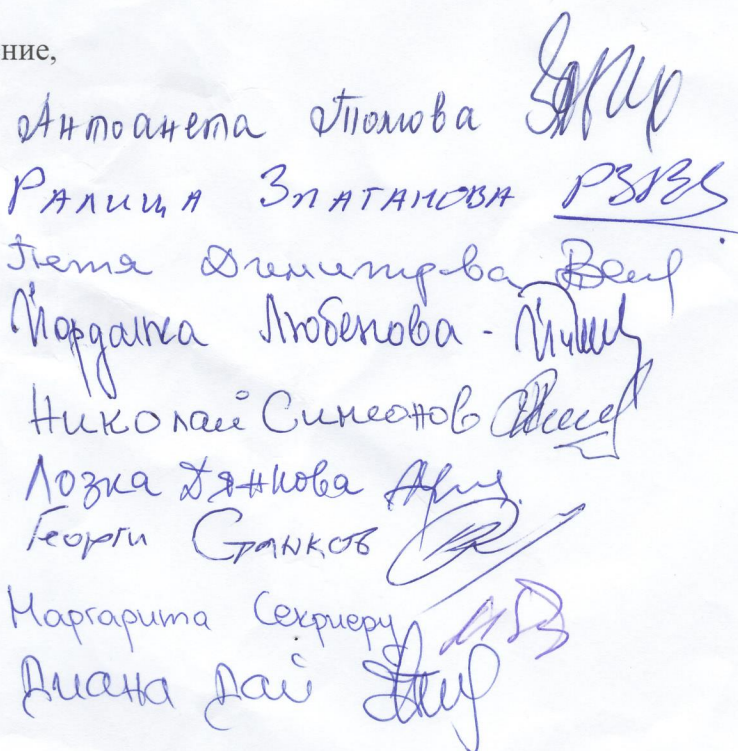 ние,
Антоанета Томова
Ралица Златанова
Петя Димитрова
Йорданка Любенова -
Николай Симеонов
Лозка Дянкова
Георги Станков
Маргарита Секриеру
Диана Дай